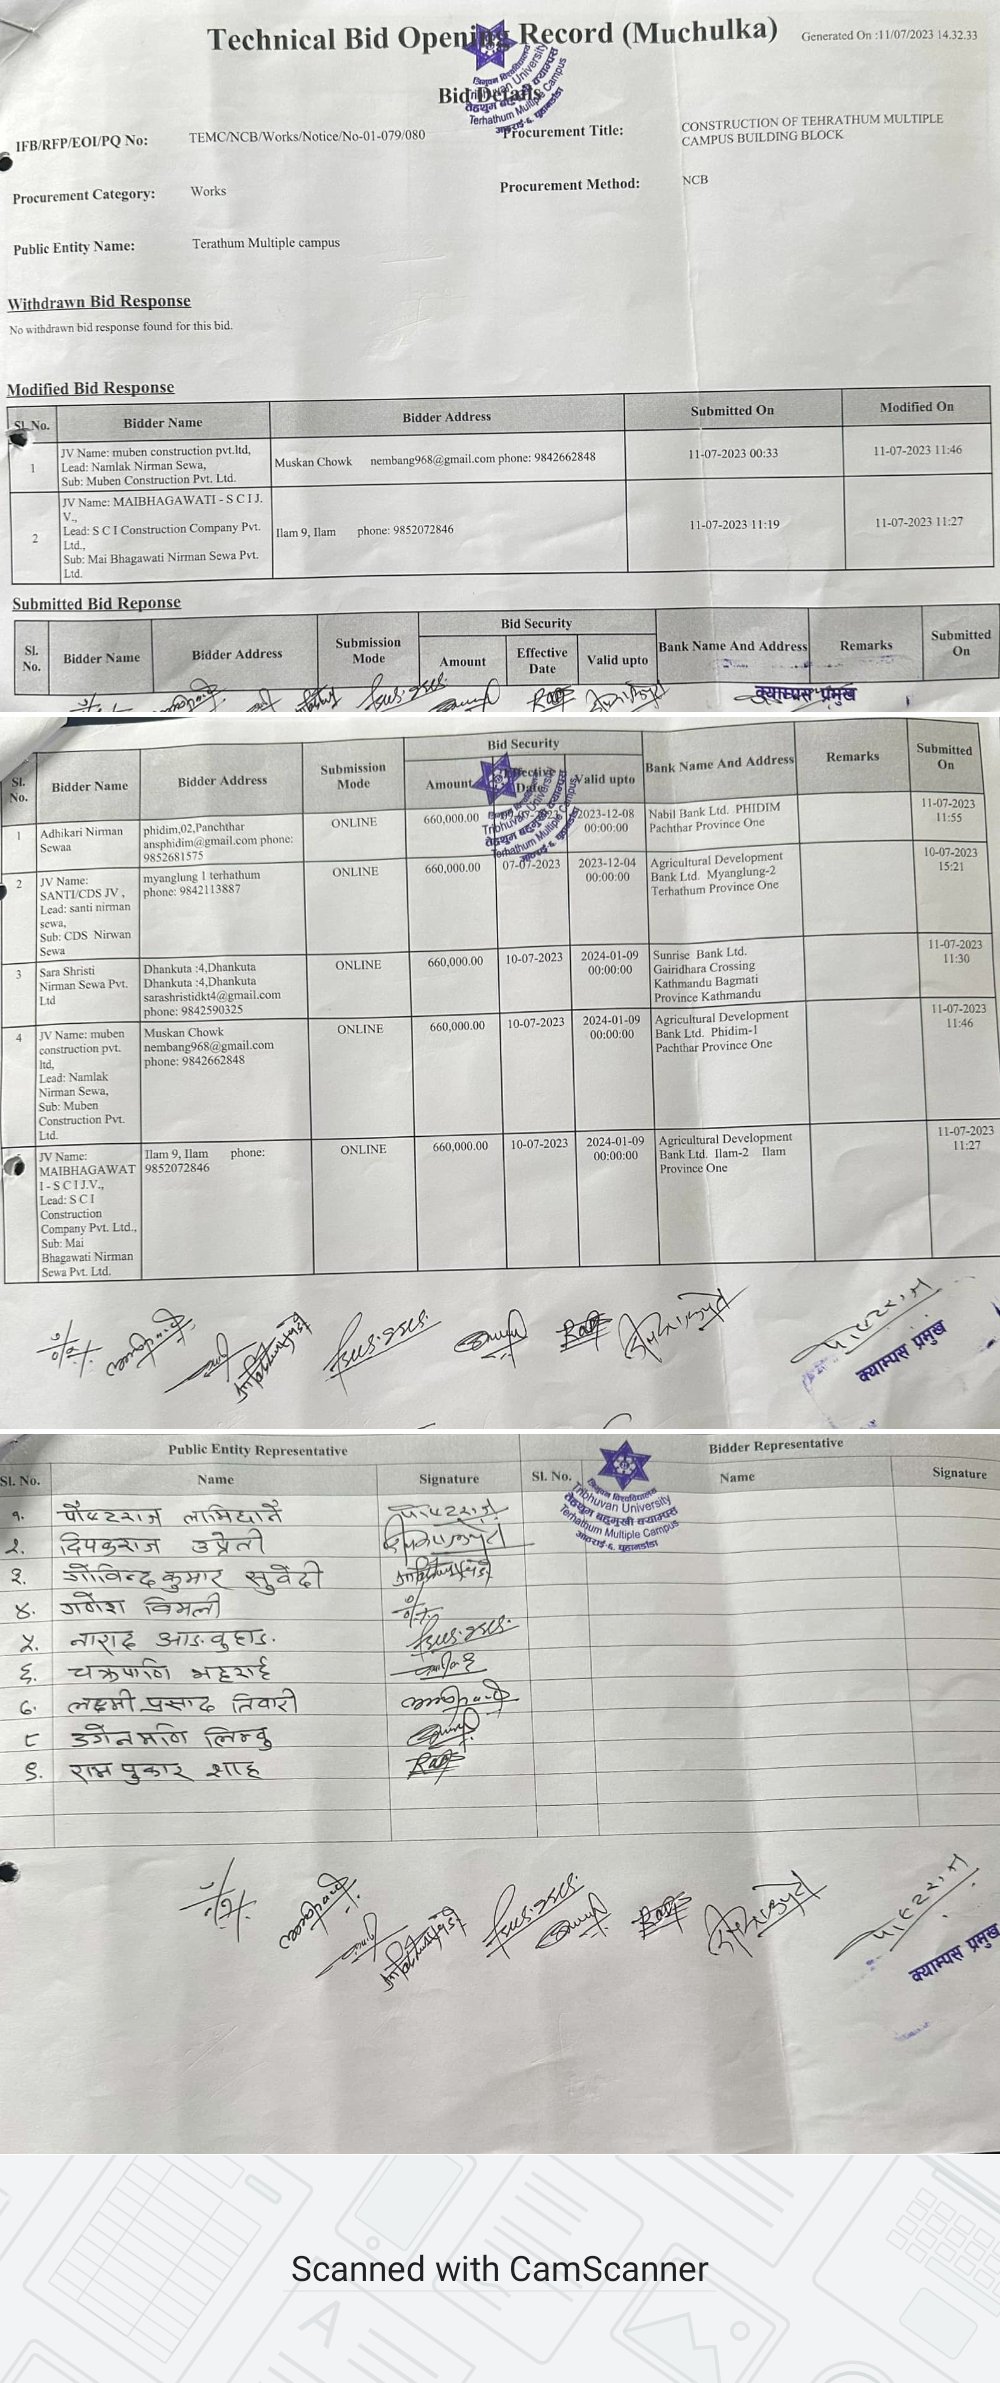 Technical Bid Opening Record (Muchulka)
Generated On :11/07/2023 14.32.33
Bid Details
त्रिभुवन विश्वविद्यालय
Tribhuvan University
तेह्रथुम बहुमुखी क्याम्पस
Terhathum Multiple Campus
IFB/RFP/EOI/PQ No: TEMC/NCB/Works/Notice/No-01-079/080
Procurement Title: CONSTRUCTION OF TEHRATHUM MULTIPLE
CAMPUS BUILDING BLOCK
Procurement Category: Works
Procurement Method: NCB
Public Entity Name: Terathum Multiple campus
Withdrawn Bid Response
No withdrawn bid response found for this bid.
Modified Bid Response
Sl. No. Bidder Name Bidder Address Submitted On Modified On
1 JV Name: muben construction pvt.ltd,
Lead: Namlak Nirman Sewa,
Sub: Muben Construction Pvt. Ltd.
Muskan Chowk nembang968@gmail.com phone: 9842662848
11-07-2023 00:33
11-07-2023 11:46
2 JV Name: MAIBHAGAWATI - S C I J.
V.,
Lead: S C I Construction Company Pvt.
Ltd.,
Sub: Mai Bhagawati Nirman Sewa Pvt.
Ltd.
Ilam 9, Ilam phone: 9852072846
11-07-2023 11:19
11-07-2023 11:27
Submitted Bid Reponse
Sl.
No.
Bidder Name
Bidder Address
Submission
Mode
Bid Security
Amount
Effective
Date
Valid upto
Bank Name And Address
Remarks
Submitted
On
क्याम्पस प्रमुख
Sl.
No.
Bidder Name
Bidder Address
Submission
Mode
Bid Security
Amount
Effective
Date
Valid upto
Bank Name And Address
Remarks
Submitted
On
Tribhuvan University
तेह्रथुम बहुमुखी क्याम्पस
Terhathum Multiple Campus
1 Adhikari Nirman
Sewaa
phidim,02,Panchthar
ansphidim@gmail.com phone:
9852681575
ONLINE
660,000.00
2023-12-08
00:00:00
Nabil Bank Ltd. PHIDIM
Pachthar Province One
11-07-2023
11:55
2 JV Name:
SANTI/CDS JV ,
Lead: santi nirman
sewa,
Sub: CDS Nirwan
Sewa
myanglung 1 terhathum
phone: 9842113887
ONLINE
660,000.00
07-07-2023
2023-12-04
00:00:00
Agricultural Development
Bank Ltd. Myanglung-2
Terhathum Province One
10-07-2023
15:21
3 Sara Shristi
Nirman Sewa Pvt.
Ltd
Dhankuta :4,Dhankuta
Dhankuta :4,Dhankuta
sarashristidkt4@gmail.com
phone: 9842590325
ONLINE
660,000.00
10-07-2023
2024-01-09
00:00:00
Sunrise Bank Ltd.
Gairidhara Crossing
Kathmandu Bagmati
Province Kathmandu
11-07-2023
11:30
4 JV Name: muben
construction pvt.
ltd,
Lead: Namlak
Nirman Sewa,
Sub: Muben
Construction Pvt.
Ltd.
Muskan Chowk
nembang968@gmail.com
phone: 9842662848
ONLINE
660,000.00
10-07-2023
2024-01-09
00:00:00
Agricultural Development
Bank Ltd. Phidim-1
Pachthar Province One
11-07-2023
11:46
JV Name:
MAIBHAGAWAT
I - S C I J.V.,
Lead: S C I
Construction
Company Pvt. Ltd.,
Sub: Mai
Bhagawati Nirman
Sewa Pvt. Ltd.
Ilam 9, Ilam phone:
9852072846
ONLINE
660,000.00
10-07-2023
2024-01-09
00:00:00
Agricultural Development
Bank Ltd. Ilam-2 Ilam
Province One
11-07-2023
11:27
क्याम्पस प्रमुख
Public Entity Representative
Bidder Representative
Sl. No. Name Signature Sl. No. Name Signature
त्रिभुवन विश्वविद्यालय
Tribhuvan University
तेह्रथुम बहुमुखी क्याम्पस
Terhathum Multiple Campus
१. लामिछाने
२. दिपकराज उप्रेती
३. गोविन्द कुमार सुवेदी
४. गणेश विमली
५. नाराद आङबुहाङ
६. चक्रपाणि भट्टराई
७. लक्ष्मी प्रसाद तिवारी
८ उगेनमणि लिम्बु
९. राम पुकार शाह
क्याम्पस प्रमुख
Scanned with CamScanner